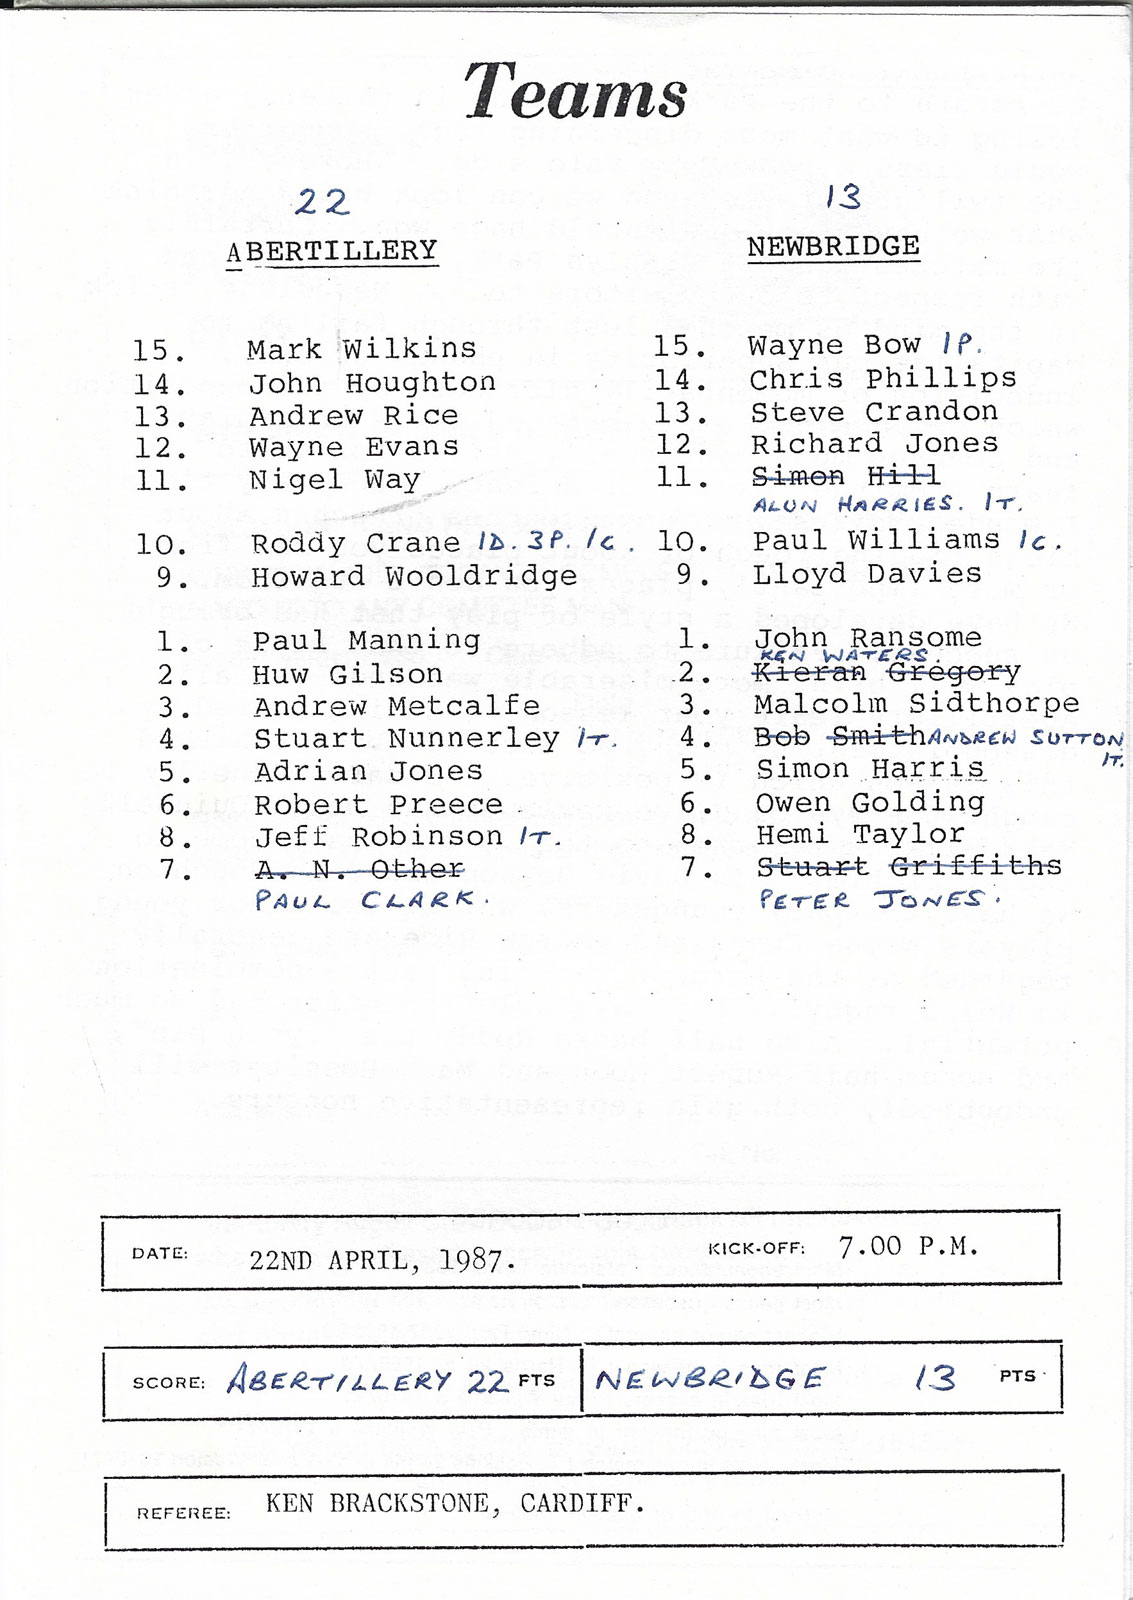 Teams
22
ABERTILLERY
15. Mark Wilkins
14. John Houghton
13. Andrew Rice
12. Wayne Evans
11. Nigel Way
10. Roddy Crane 1D. 3P. 1C.
9. Howard Wooldridge
1. Paul Manning
2. Huw Gilson
3. Andrew Metcalfe
4. Stuart Nunnerley 1T.
5. Adrian Jones
6. Robert Preece
8. Jeff Robinson 1T.
7. A. N. Other
PAUL CLARK.
13
NEWBRIDGE
15. Wayne Bow 1P.
14. Chris Phillips
13. Steve Crandon
12. Richard Jones
11. Simon Hill
ALUN HARRIES. 1T.
10. Paul Williams 1C.
9. Lloyd Davies
1. John Ransome
KEN WATERS.
2. Kieran Gregory
3. Malcolm Sidthorpe
4. Bob Smith ANDREW SUTTON
1T.
5. Simon Harris
6. Owen Golding
8. Hemi Taylor
7. Stuart Griffiths
PETER JONES.
DATE: 22ND APRIL, 1987. KICK-OFF: 7.00 P.M.
SCORE: ABERTILLERY 22 PTS NEWBRIDGE 13 PTS
REFEREE: KEN BRACKSTONE, CARDIFF.